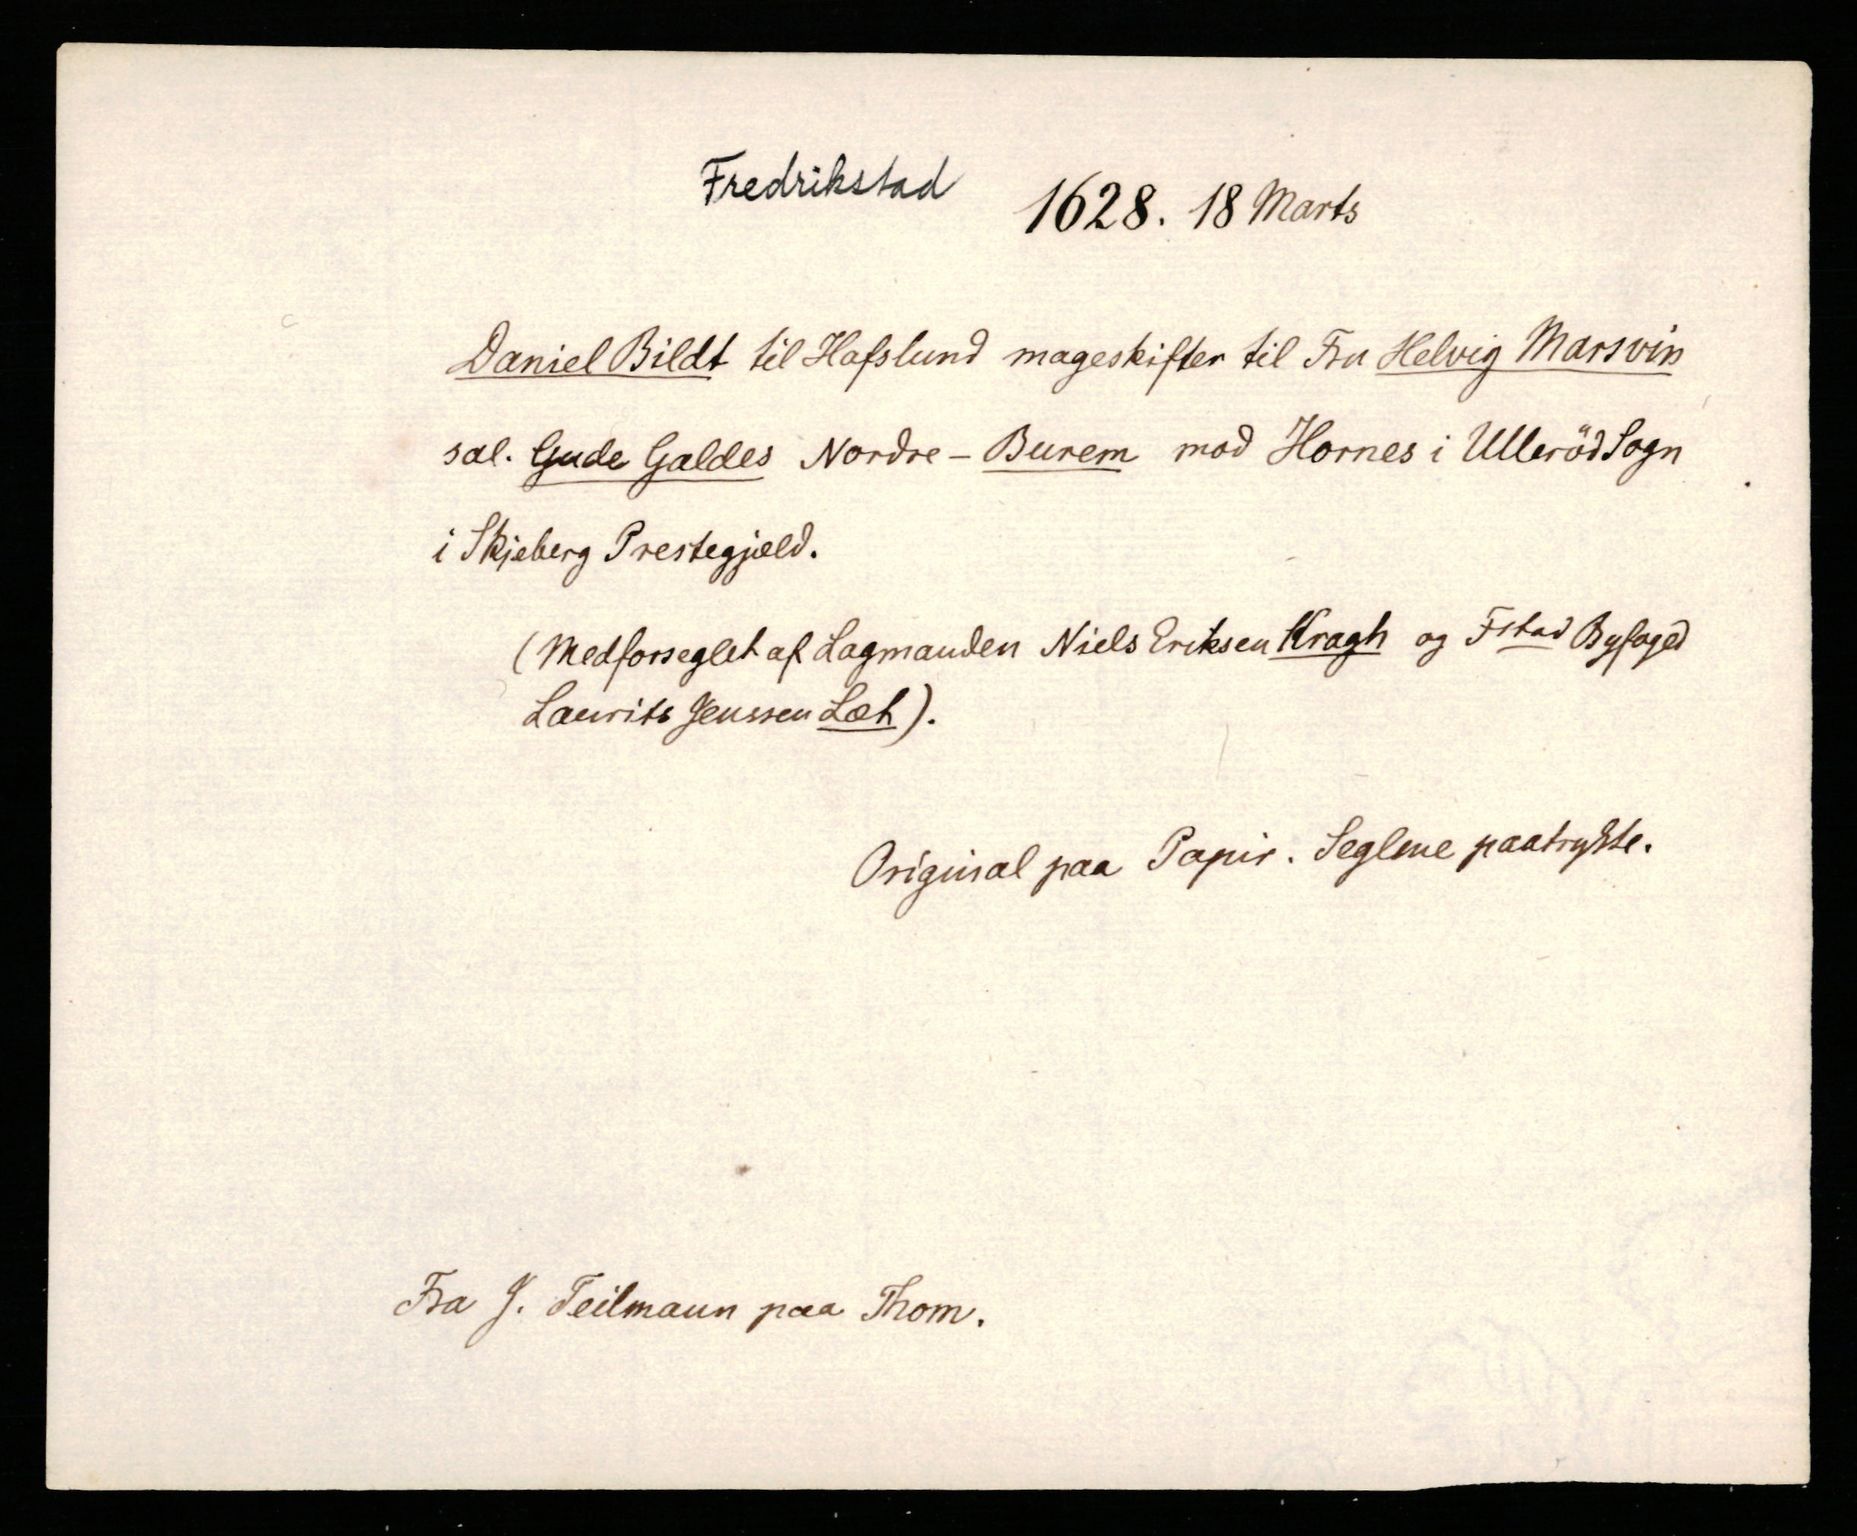 Fredrikstad 1628. 18 Marts
Daniel Bildt til Hafslund mageskifter til Fru Helvig Marsvin
sal. Gude Galdes Nordre - Burem mod Hornes i Ulleröd Sogn
i Skjeberg Prestegjæld.
(Medforseglet af Lagmanden Niels Eriksen Kragh og Fstad Byfoged
Laurits Jenssen Læt).
Original paa Papir. Seglene paatrykte.
Fra J. Teilmann paa Thom.